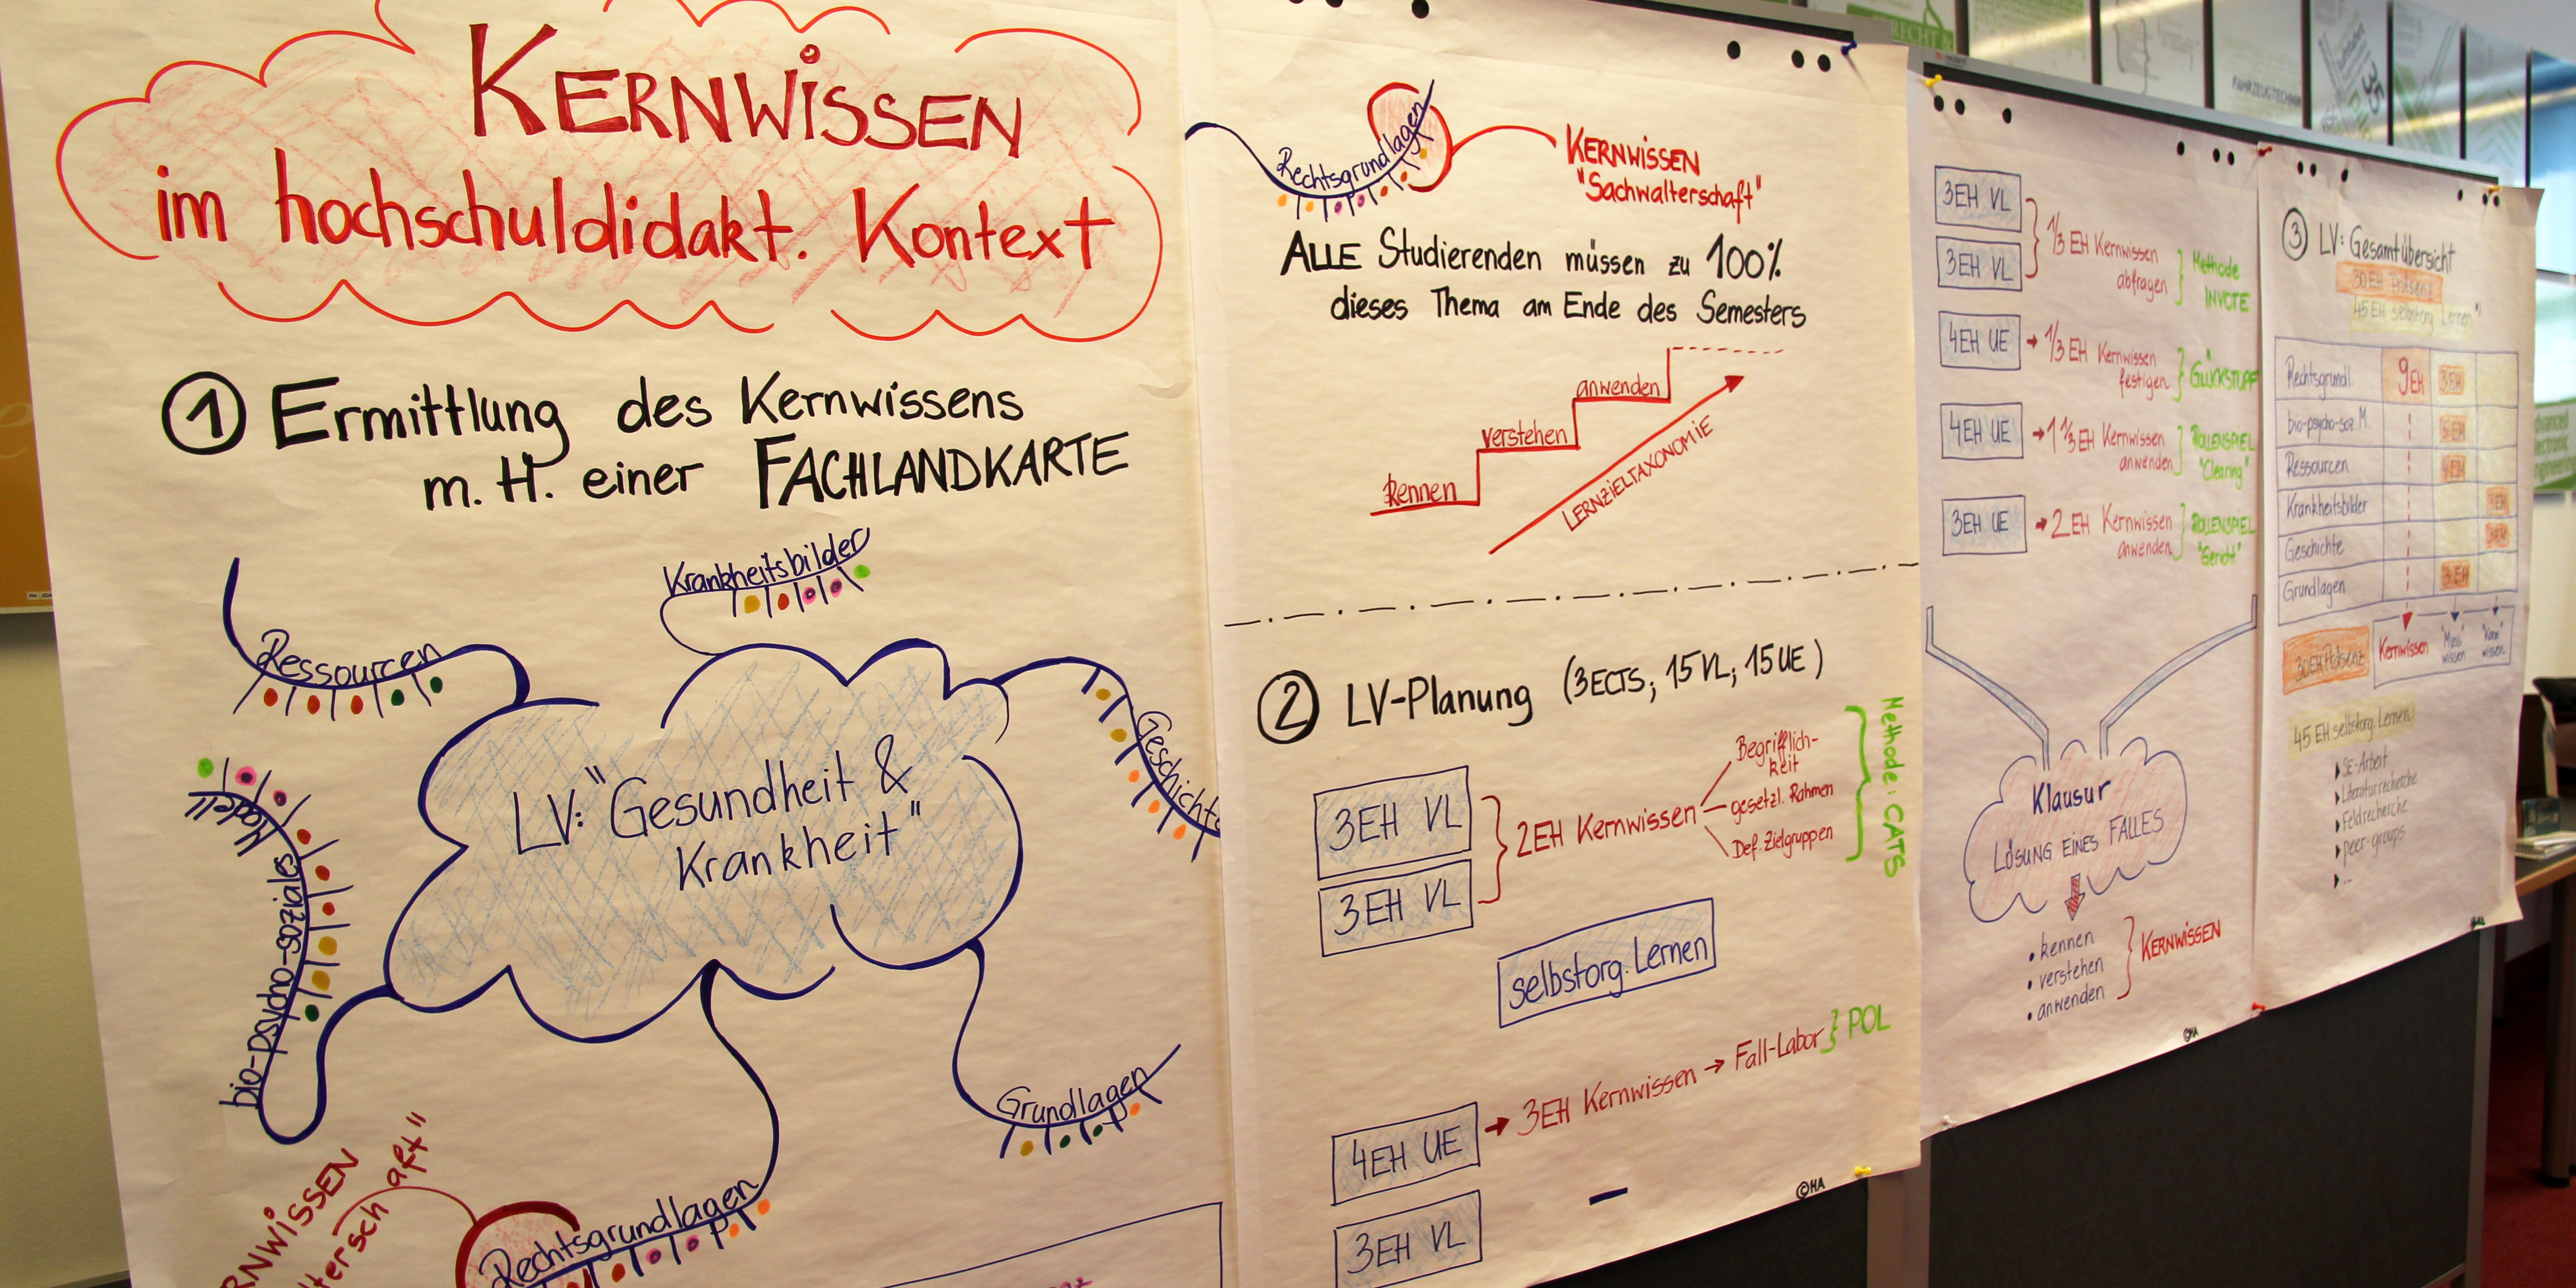 KERNWISSEN
im hochschuldidakt. Kontext
1 Ermittlung des Kernwissens
m. H. einer FACHLANDKARTE
Krankheitsbilder
Ressourcen
Geschichte
Modell
bio-psycho-soziales
LV: "Gesundheit &
Krankheit"
Grundlagen
Rechtsgrundlagen
RNWISSEN
aft"
Rechtsgrundlagen
KERNWISSEN
"Sachwalterschaft"
ALLE Studierenden müssen zu 100%
dieses Thema am Ende des Semesters
anwenden
verstehen
kennen
LERNZIELTAXONOMIE
2 LV-Planung (3ECTS; 15VL; 15UE)
3EH VL
3EH VL
2EH Kernwissen
Begrifflich-
keit
gesetzl. Rahmen
Def. Zielgruppen
Methode: CATS
selbstorg. Lernen
4EH UE → 3EH Kernwissen → Fall-Labor } POL
3EH VL
©HA
3EH VL
3EH VL
1/3 EH Kernwissen
abfragen
Methode
INVOTE
4EH UE → 1/3 EH Kernwissen
festigen
GLÜCKSTOPF
4EH UE → 1 1/3 EH Kernwissen
anwenden
ROLLENSPIEL
"Clearing"
3EH UE → 2EH Kernwissen
anwenden
ROLLENSPIEL
"Gericht"
Klausur
LÖSUNG EINES FALLES
• kennen
• verstehen
• anwenden
KERNWISSEN
©HA
3 LV: Gesamtübersicht
30EH Präsenz
45EH selbstorg. Lernen
Rechtsgrundl. 9EH 3EH
bio-psycho-soz. M.
Ressourcen 4EH
Krankheitsbilder 3EH
Geschichte 3EH
Grundlagen 3EH
30EH Präsenz
Kernwissen
"Muss"
wissen
"Kann"
wissen
45 EH selbstorg. Lernen
SE-Arbeit
Literaturrecherche
Feldrecherche
peer-groups
...
FAHRZEUGTECHNIK